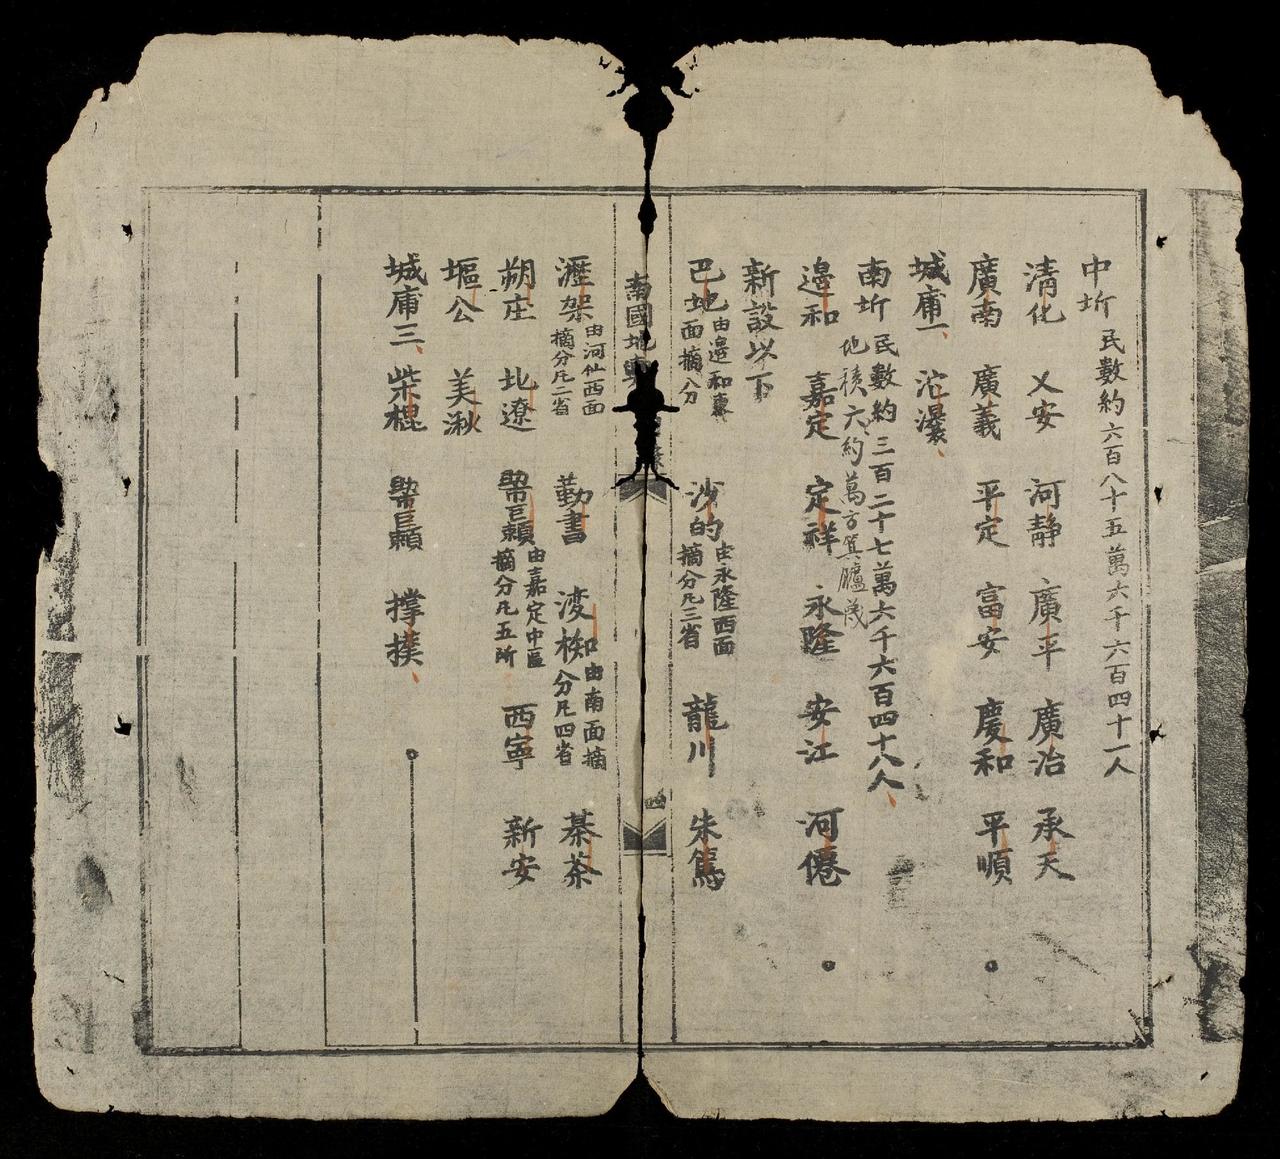 中圻 民數約六百八十五萬六千六百四十一人
清化 乂安 河靜 廣平 廣治 承天
廣南 廣義 平定 富安 慶和 平順
城庸一 沱㶞
南圻 民數約三百二十七萬六千六百四十八人
地積六約萬方箕臚
邉和 嘉定 定祥 永隆 安江 河僊
新設㕥下
巴地 由邉和東
面摘分 沙的 由永隆西面
摘分凡三省 龍川 朱篤
南國地輿
四
瀝架 由河仙西面
摘分凡二省 勤書 滰椥 由南面摘
分凡四省 茶
朔庄 北遼 由嘉定中區
摘分凡五所 西寧 新安
塸公 美湫
城庸三 柴棍 撑撲